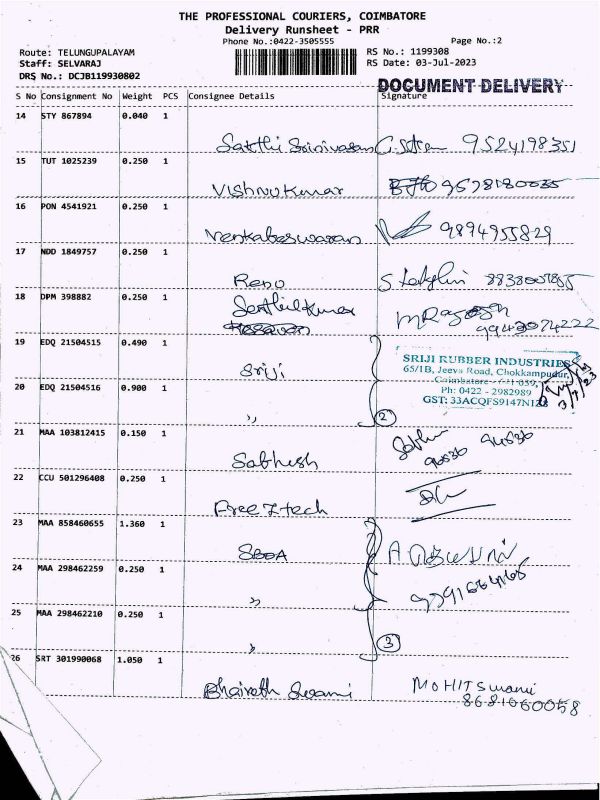 THE PROFESSIONAL COURIERS, COIMBATORE
Delivery Runsheet - PRR
Phone No.:0422-3505555
Page No.:2
Route: TELUNGUPALAYAM
RS No.: 1199308
Staff: SELVARAJ
RS Date: 03-Jul-2023
DRS No.: DCJB119930802
DOCUMENT DELIVERY
S No Consignment No Weight PCS Consignee Details Signature
14 STY 867894 0.040 1
Sakthi Srinivasan 9524198351
15 TUT 1025239 0.250 1
Vishnukumar
16 PON 4541921 0.250 1
Venkateswaran 9894955829
17 NDD 1849757 0.250 1
18 DPM 398882 0.250 1
Senthilkumar
19 EDQ 21504515 0.490 1
Sriji
SRIJI RUBBER INDUSTRIES
65/1B, Jeeva Road, Chokkampudur,
Coimbatore - 641 039,
Ph: 0422 - 2982989
3/7/23
20 EDQ 21504516 0.900 1
" 2
21 MAA 103812415 0.150 1
22 CCU 501296408 0.250 1
Free Z tech
23 MAA 858460655 1.360 1
24 MAA 298462259 0.250 1
"
25 MAA 298462210 0.250 1
" 3
26 SRT 301990068 1.050 1
MOHIT Swami
8681060058